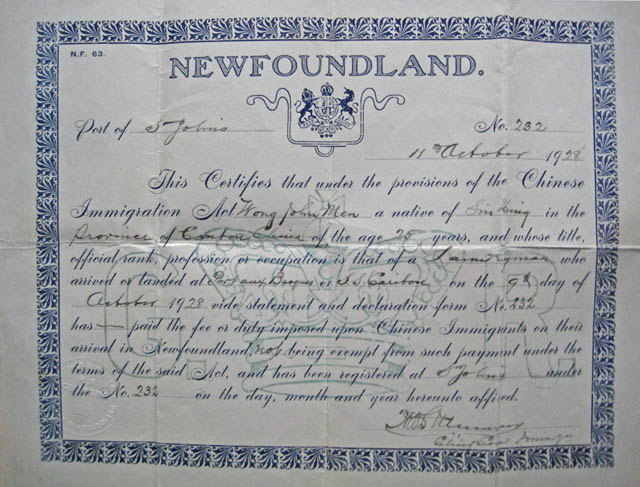 N.F. 63.
NEWFOUNDLAND.
Port of St Johns No. 232
11th October 1928
This Certifies that under the provisions of the Chinese
Immigration Act Wong John Men a native of Sin King in the
Province of Canton China of the age 25 years, and whose title,
official rank, profession or occupation is that of a Laundryman who
arrived or landed at Port aux Basques or S.S. Caribou on the 9th day of
October 1928 vide statement and declaration form No. 232
has — paid the fee or duty imposed upon Chinese Immigrants on their
arrival in Newfoundland, not being exempt from such payment under the
terms of the said Act, and has been registered at St Johns under
the No. 232 on the day, month and year hereunto affixed.
G. R.